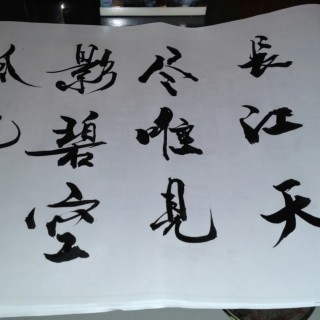 影碧空
尽唯見
長江天